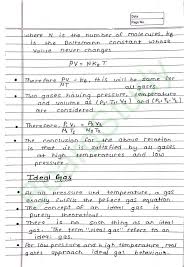 Date
Page No.
where N is the number of molecules, kB
is the Boltzmann constant whose
value never changes
PV = NKBT
Therefore PV = kB, this will be same for
NT all gases.
Two gases having pressure, temperature
and volume as (P1, T1, V1) and (P2, T2, V2)
are considered
Therefore, P1 V1 = P2 V2
M1 T1 M2 T2
The conclusion for the above relation
is that it is satisfied by all gases
at high temperatures and low
pressure
Ideal Gas
At all pressure and temperature, a gas
exactly fulfils the perfect gas equation.
The concept of an ideal gas is
purely theoretical.
There is no such thing as an ideal
gas. The term "ideal gas" refers to an
ideal gas.
For low pressure and high temperature, real
gases approach ideal gas behaviour.